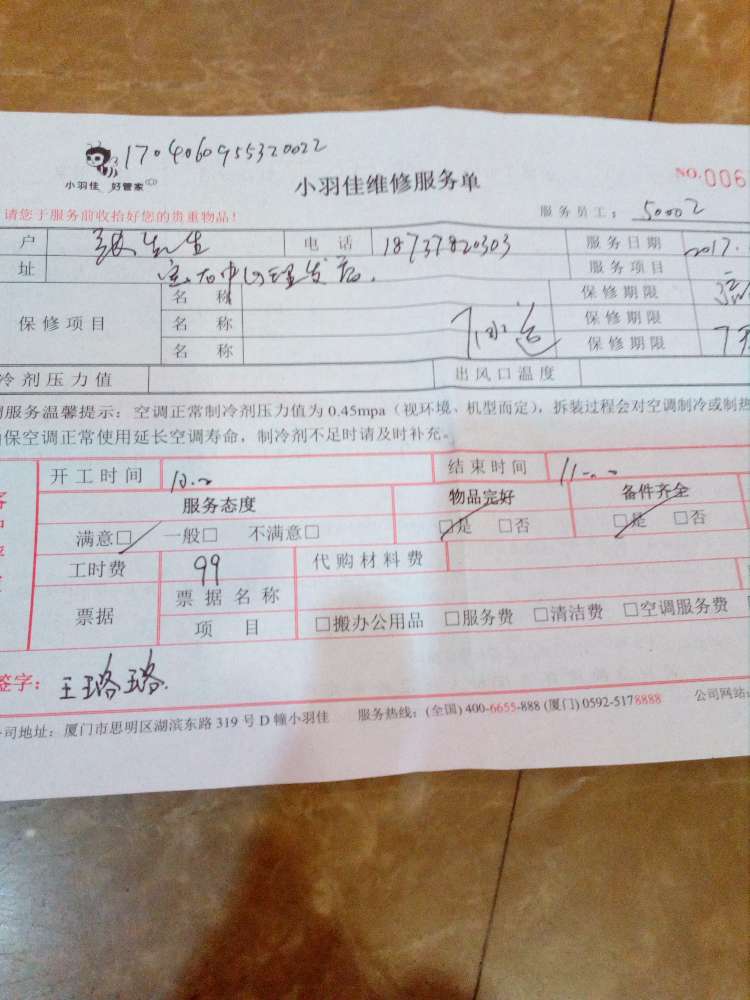 1704060955320022
小羽佳 好管家
小羽佳维修服务单
NO.006
请您于服务前收拾好您的贵重物品！
服务员工： 50002
户 张先生 电话 18737820303 服务日期 2017.
址 服务项目
保修项目 名称 保修期限
名称 保修期限
名称 保修期限 7天
冷剂压力值 出风口温度
调服务温馨提示：空调正常制冷剂压力值为 0.45mpa（视环境、机型而定），拆装过程会对空调制冷或制热
确保空调正常使用延长空调寿命，制冷剂不足时请及时补充。
开工时间 结束时间
服务态度 物品完好 备件齐全
满意□ 一般□ 不满意□ □是 □否 □是 □否
工时费 99 代购材料费
票据 票据名称
项目 □搬办公用品 □服务费 □清洁费 □空调服务费
签字：王璐璐
公司地址：厦门市思明区湖滨东路 319 号 D 幢小羽佳 服务热线：(全国) 400-6655-888 (厦门) 0592-5178888 公司网站：